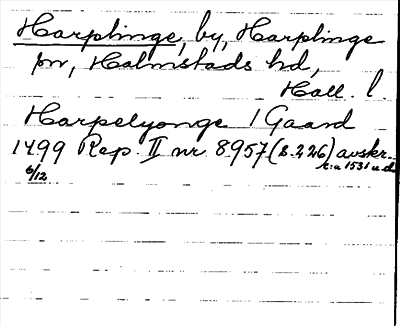 Harplinge, by, Harplinge
sn, Halmstads hd,
Hall. l.
Harpelyonge 1 Gaard
1499 Rep. II nr 8957 (s. 226) avskr.
6/12 r: a 1531 u.d.